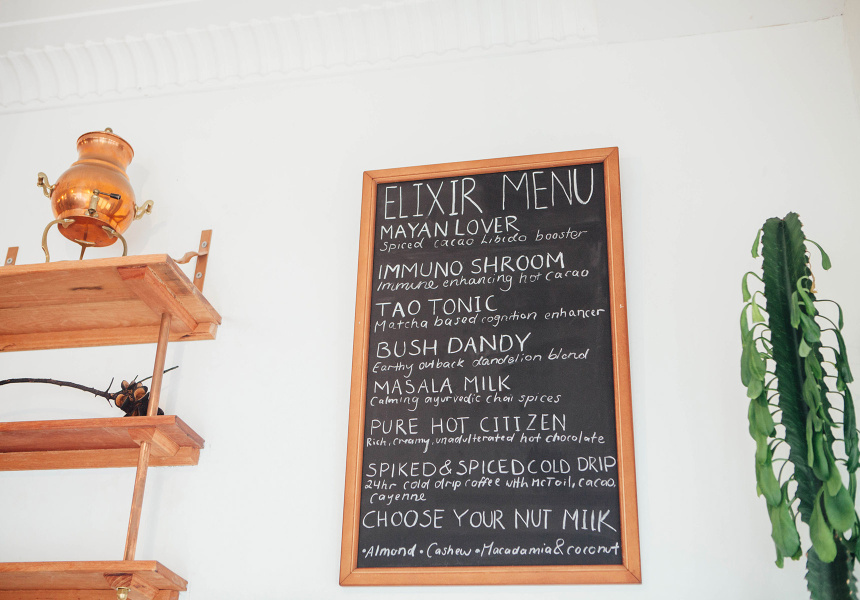 ELIXIR MENU
MAYAN LOVER
Spiced cacao libido booster
IMMUNO SHROOM
Immune enhancing hot cacao
TAO TONIC
Matcha based cognition enhancer
BUSH DANDY
Earthy outback dandelion blend
MASALA MILK
Calming ayurvedic chai spices
PURE HOT CITIZEN
Rich, creamy, unadulterated hot chocolate
SPIKED & SPICED COLD DRIP
24hr cold drip coffee with McT oil, cacao,
cayenne
CHOOSE YOUR NUT MILK
• Almond • Cashew • Macadamia & coconut